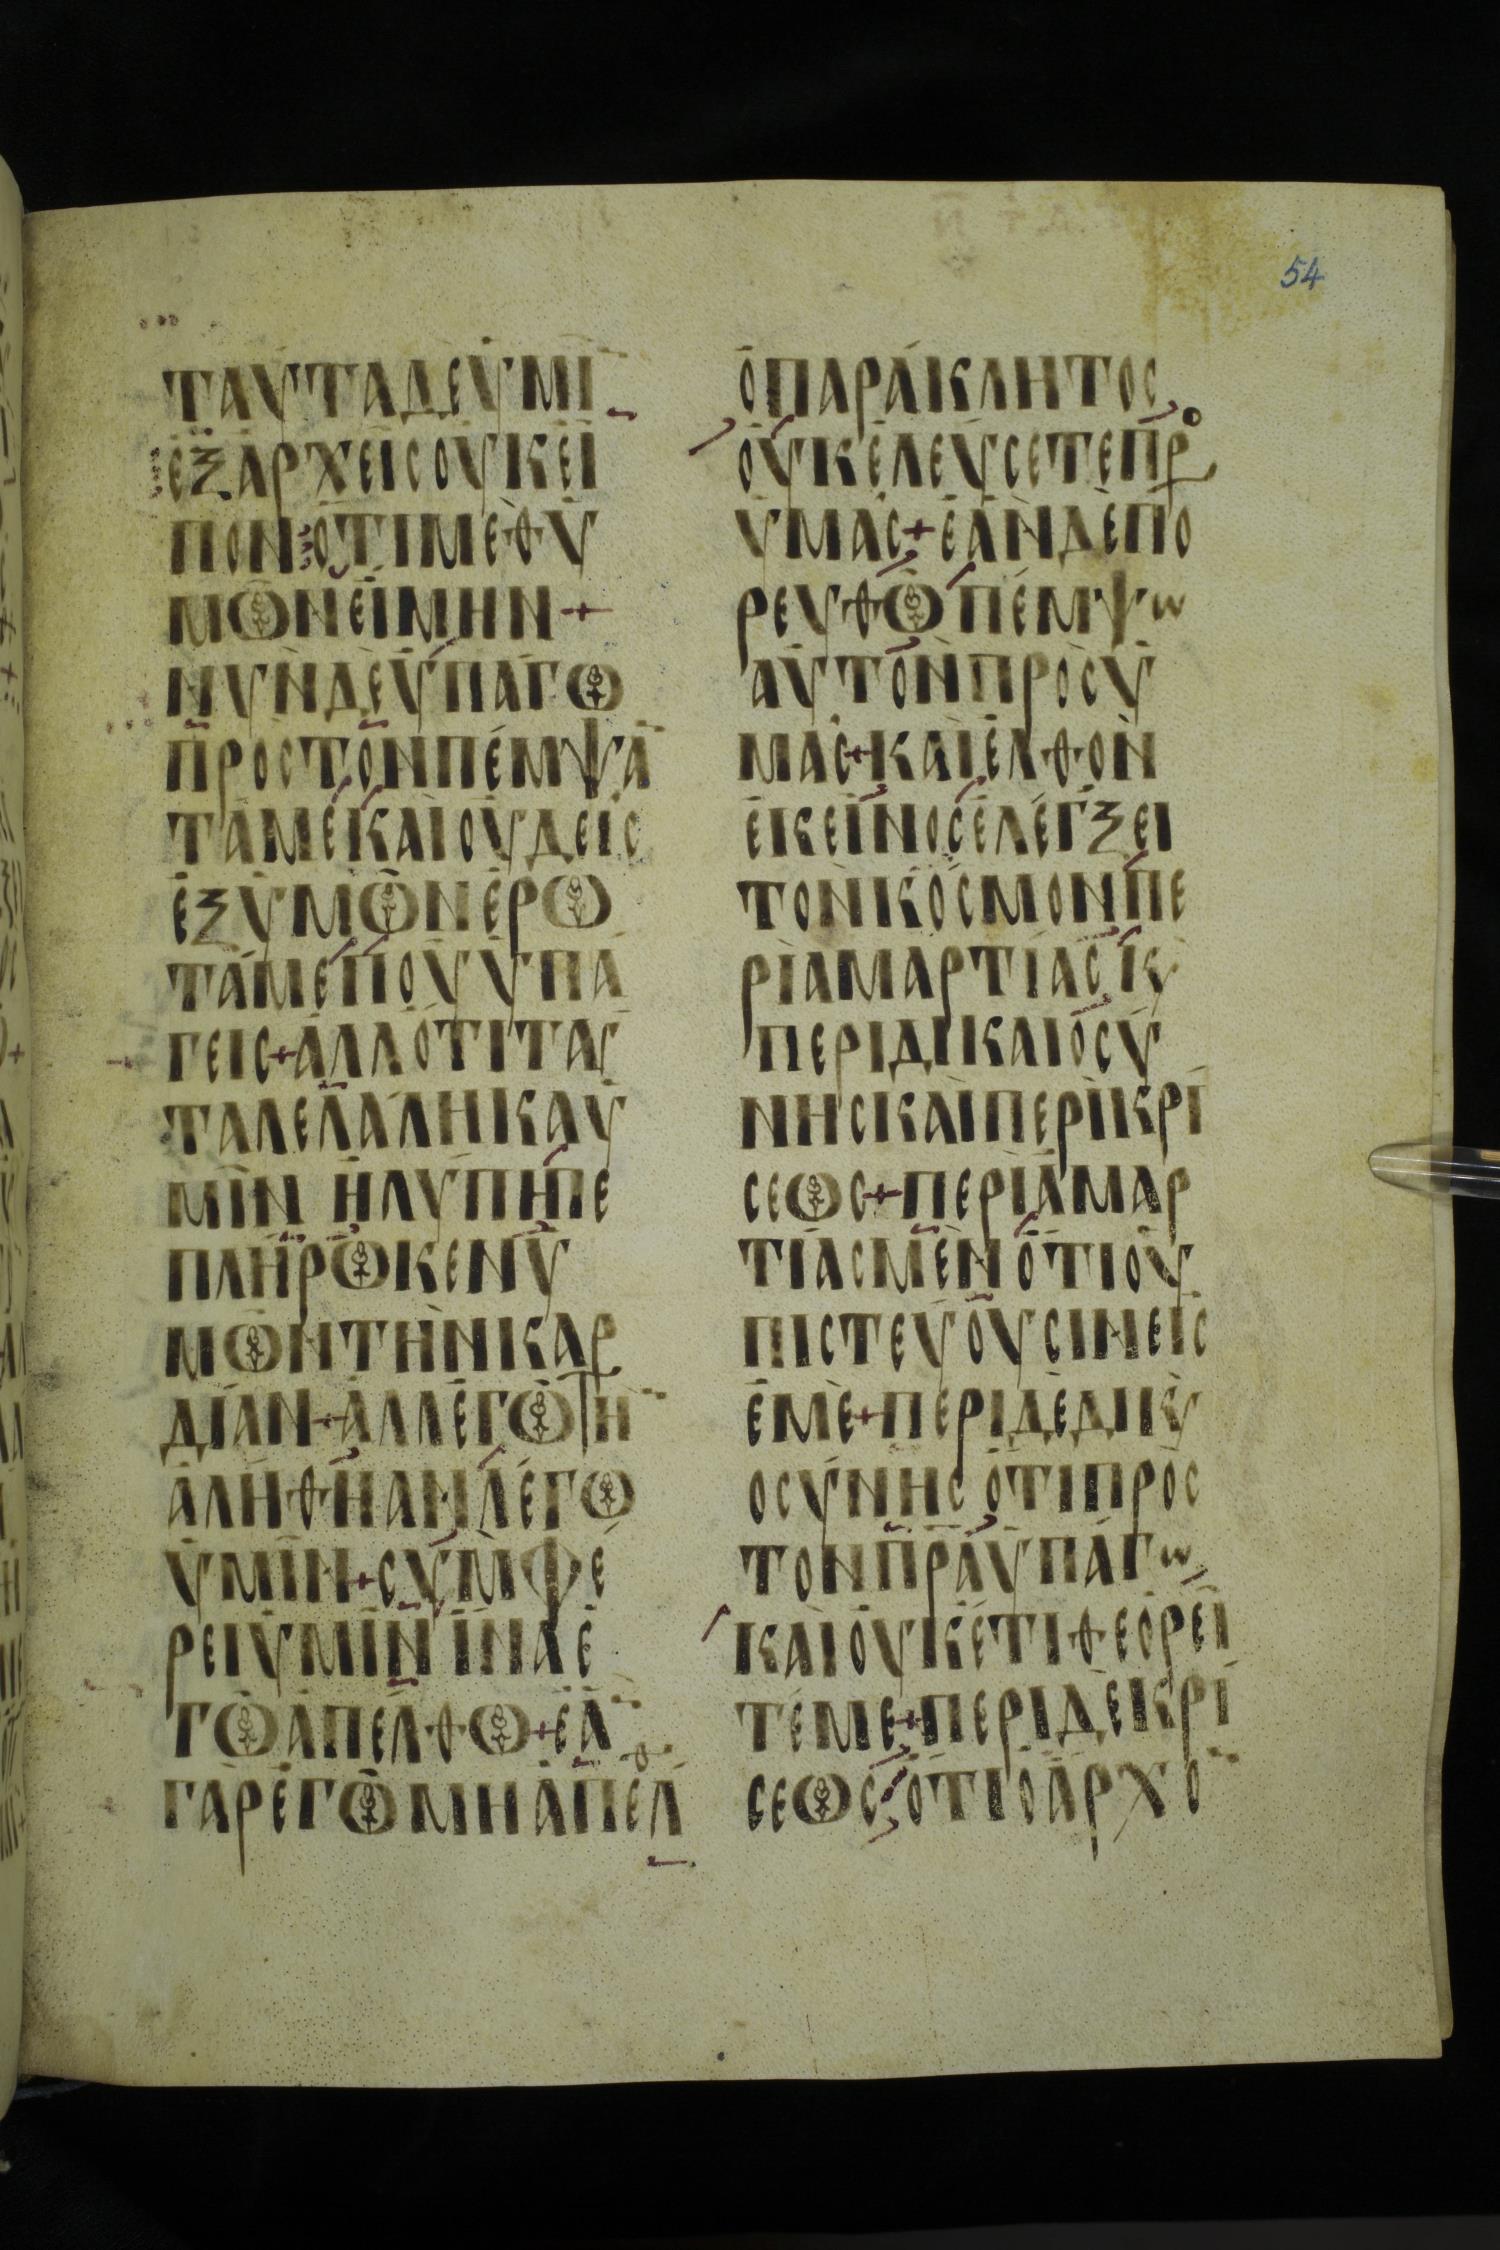 54
ΤΑΥΤΑΔΕΥΜΙ̅
ΕΞΑΡΧΕΙϹΟΥΚΕΙ
ΠΟΝ ΟΤΙΜΕΘΥ
ΜΩΝΕΙΜΗΝ+
ΝΥΝΔΕΥΠΑΓΩ
ΠΡΟϹΤΟΝΠΕΜΨΑ̅
ΤΑΜΕΚΑΙΟΥΔΕΙϹ
ΕΞΥΜΩΝΕΡΩ
ΤΑΜΕΠΟΥΥΠΑ
ΓΕΙϹ+ΑΛΛΟΤΙΤΑΥ
ΤΑΛΕΛΑΛΗΚΑΥ
ΜΙΝ ΗΛΥΠΗΠΕ
ΠΛΗΡΩΚΕΝΥ
ΜΩΝΤΗΝΚΑΡ
ΔΙΑΝ+ΑΛΛΕΓΩΤΗ̅
ΑΛΗΘΗΑΝΛΕΓΩ
ΥΜΙΝ+ϹΥΜΦΕ
ΡΕΙΥΜΙΝΙΝΑΕ
ΓΩΑΠΕΛΘΩ+ΕΑ̅
ΓΑΡΕΓΩΜΗΑΠΕΛθ
ΟΠΑΡΑΚΛΗΤΟϹ
ΟΥΚΕΛΕΥϹΕΤΕΠΡο
ΥΜΑϹ+ΕΑΝΔΕΠΟ
ΡΕΥΘΩΠΕΜΨω
ΑΥΤΟΝΠΡΟϹΥ
ΜΑϹ+ΚΑΙΕΛΘΟΝ
ΕΚΕΙΝΟϹΕΛΕΓΞΕΙ
ΤΟΝΚΟϹΜΟΝΠΕ
ΡΙΑΜΑΡΤΙΑϹΚ
ΠΕΡΙΔΙΚΑΙΟϹΥ
ΝΗϹΚΑΙΠΕΡΙΚΡΙ
ϹΕΩϹ+ΠΕΡΙΑΜΑΡ
ΤΙΑϹΜΕΝΟΤΙΟΥ
ΠΙϹΤΕΥΟΥϹΙΝΕΙϹ
ΕΜΕ+ΠΕΡΙΔΕΔΙΚ
ΟϹΥΝΗϹ ΟΤΙΠΡΟϹ
ΤΟΝΠΡΑΥΠΑΓω
ΚΑΙΟΥΚΕΤΙΘΕΟΡΕΙ
ΤΕΜΕ+ΠΕΡΙΔΕΚΡΙ
ϹΕΩϹ ΟΤΙΟΑΡΧΟ̅